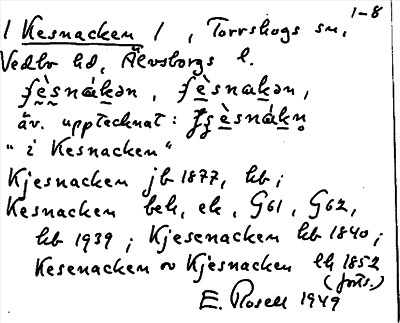 1-8
/ Kesnacken / , Torrskogs sn,
Vedbo hd, Älvsborgs l.
äv. upptecknat:
"i Kesnacken"
Kjesnacken jb 1877, kb;
Kesnacken bek, ek, G61, G62,
kb 1939; Kjesenacken kb 1840;
Kesenacken ~ Kjesnacken lh 1852
(forts.)
E. Rosell 1949